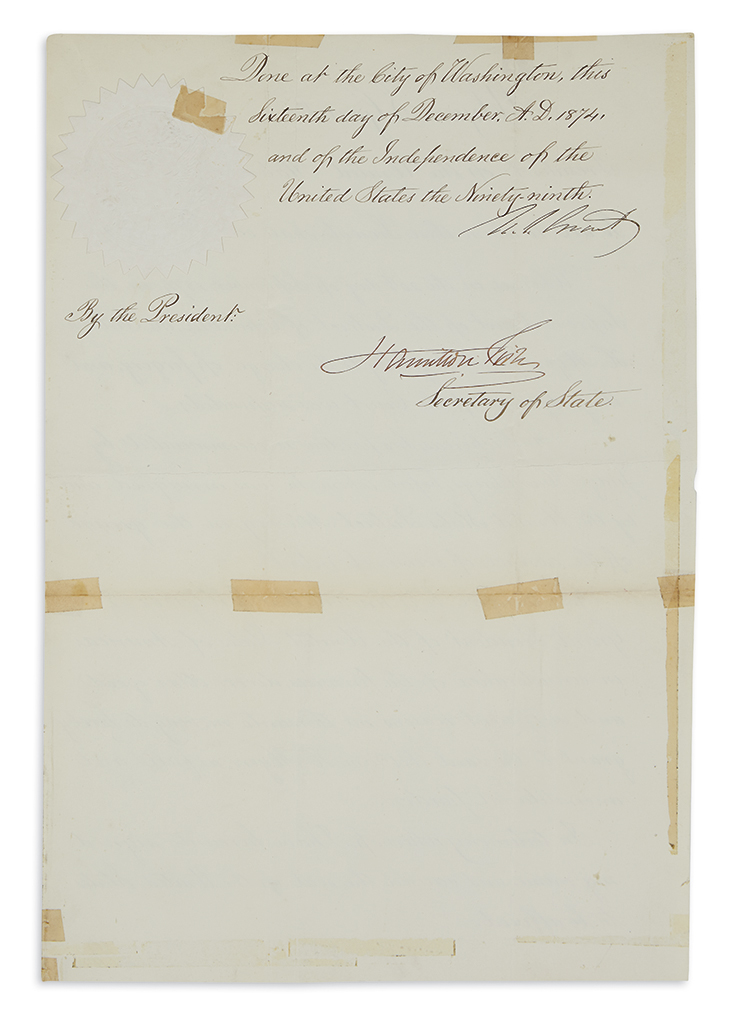 Done at the City of Washington, this
Sixteenth day of December, A.D. 1874,
and of the Independence of the
United States the Ninety-ninth.
U. S. Grant
By the President:
Hamilton Fish
Secretary of State.